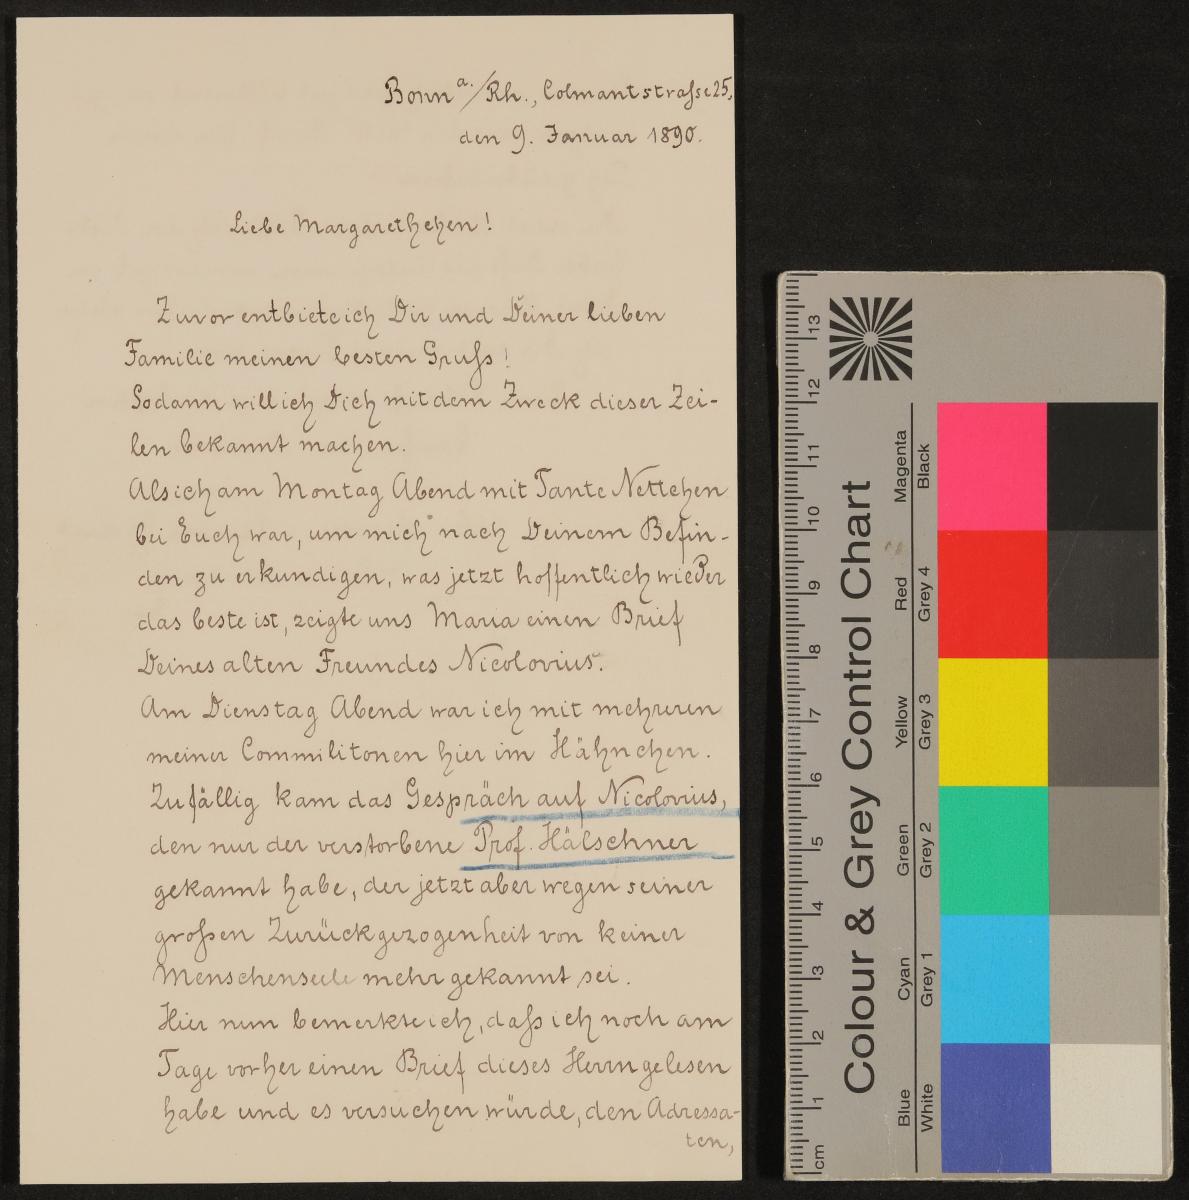 Bonn a./Rh., Colmantstraße 25,
den 9. Januar 1890.
Liebe Margarethchen!
Zuvor entbiete ich Dir und Deiner lieben
Familie meinen besten Gruß!
Sodann will ich Dich mit dem Zweck dieser Zei-
len bekannt machen.
Als ich am Montag Abend mit Tante Nettchen
bei Euch war, um mich nach Deinem Befin-
den zu erkundigen, was jetzt hoffentlich wieder
das beste ist, zeigte uns Maria einen Brief
Deines alten Freundes Nicolovius.
Am Dienstag Abend war ich mit mehreren
meiner Commilitonen hier im Hähnchen.
Zufällig kam das Gespräch auf Nicolovius,
den nur der verstorbene Prof. Hälschner
gekannt habe, der jetzt aber wegen seiner
großen Zurückgezogenheit von keiner
Menschenseele mehr gekannt sei.
Hier nun bemerkte ich, daß ich noch am
Tage vorher einen Brief dieses Herrn gelesen
habe und es versuchen würde, den Adressa-
ten,
Colour & Grey Control Chart
Magenta
Black
Red
Grey 4
Yellow
Grey 3
Green
Grey 2
Cyan
Grey 1
Blue
White
13
12
11
10
9
8
7
6
5
4
3
2
1
cm